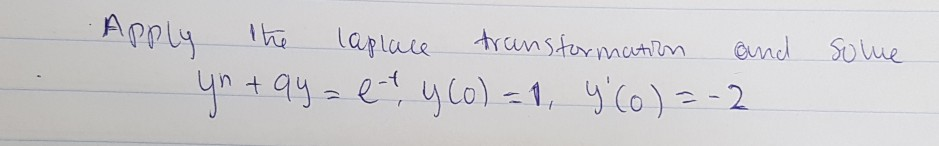 Apply the laplace transformation and solve
y" + 9y = e^-t, y(0) = 1, y'(0) = -2